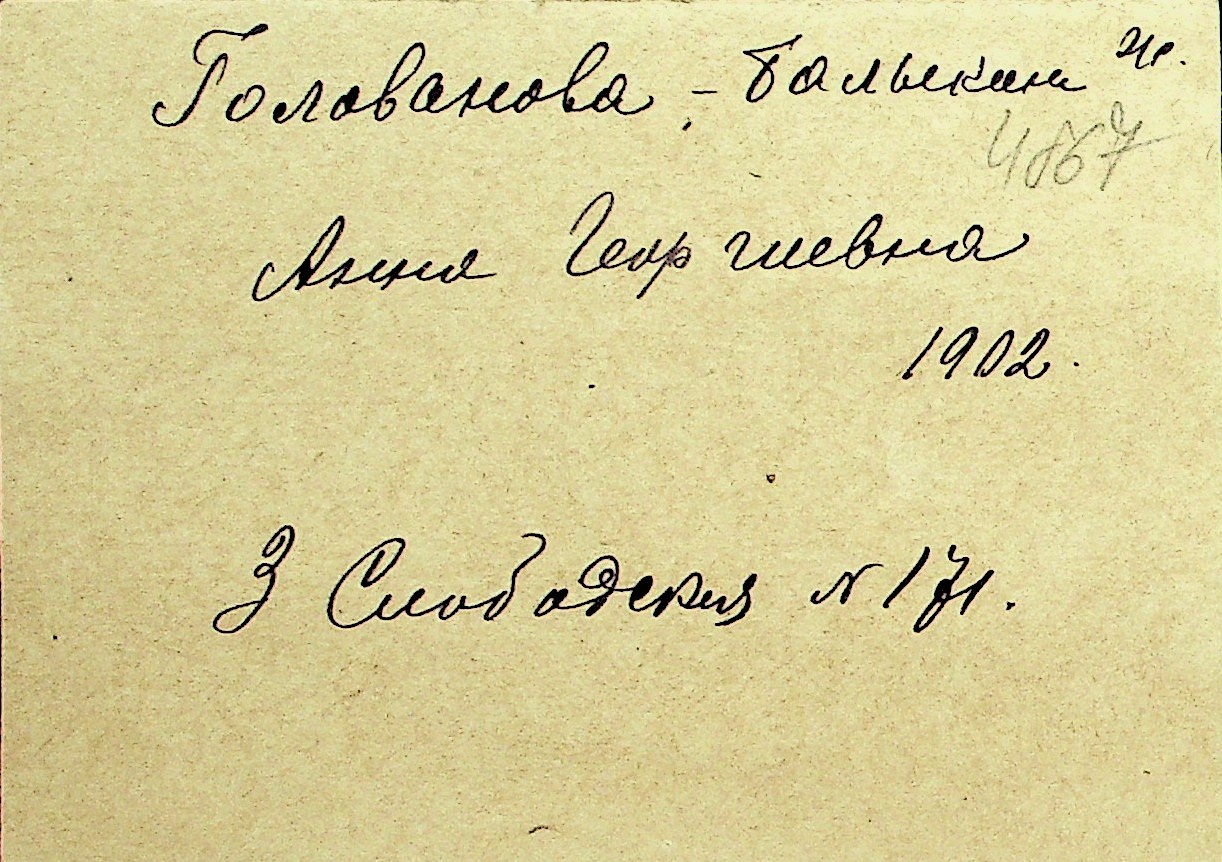 Голованова - Балыкина
4867
Анна Георгиевна
1902.
3 Слободская № 171.